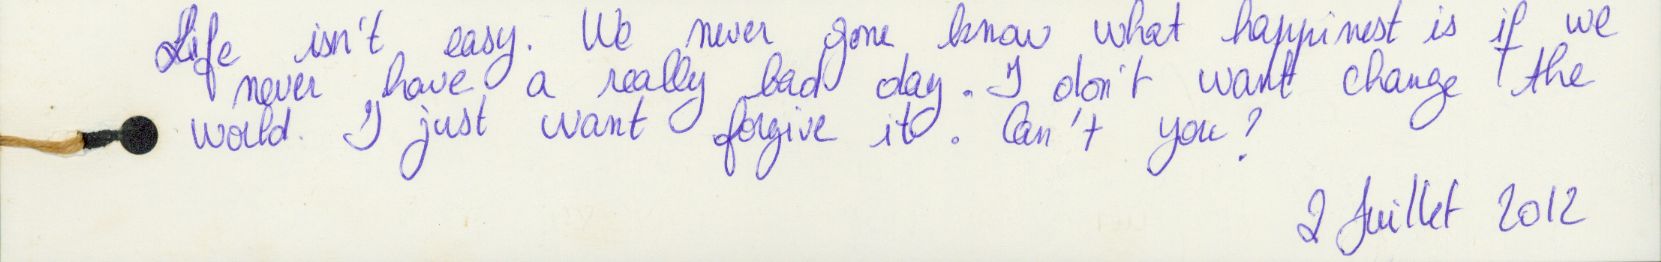 Life isn't easy. We never gone know what happinest is if we
never have a really bad day. I don't want change the
world. I just want forgive it. Can't you?
2 Juillet 2012